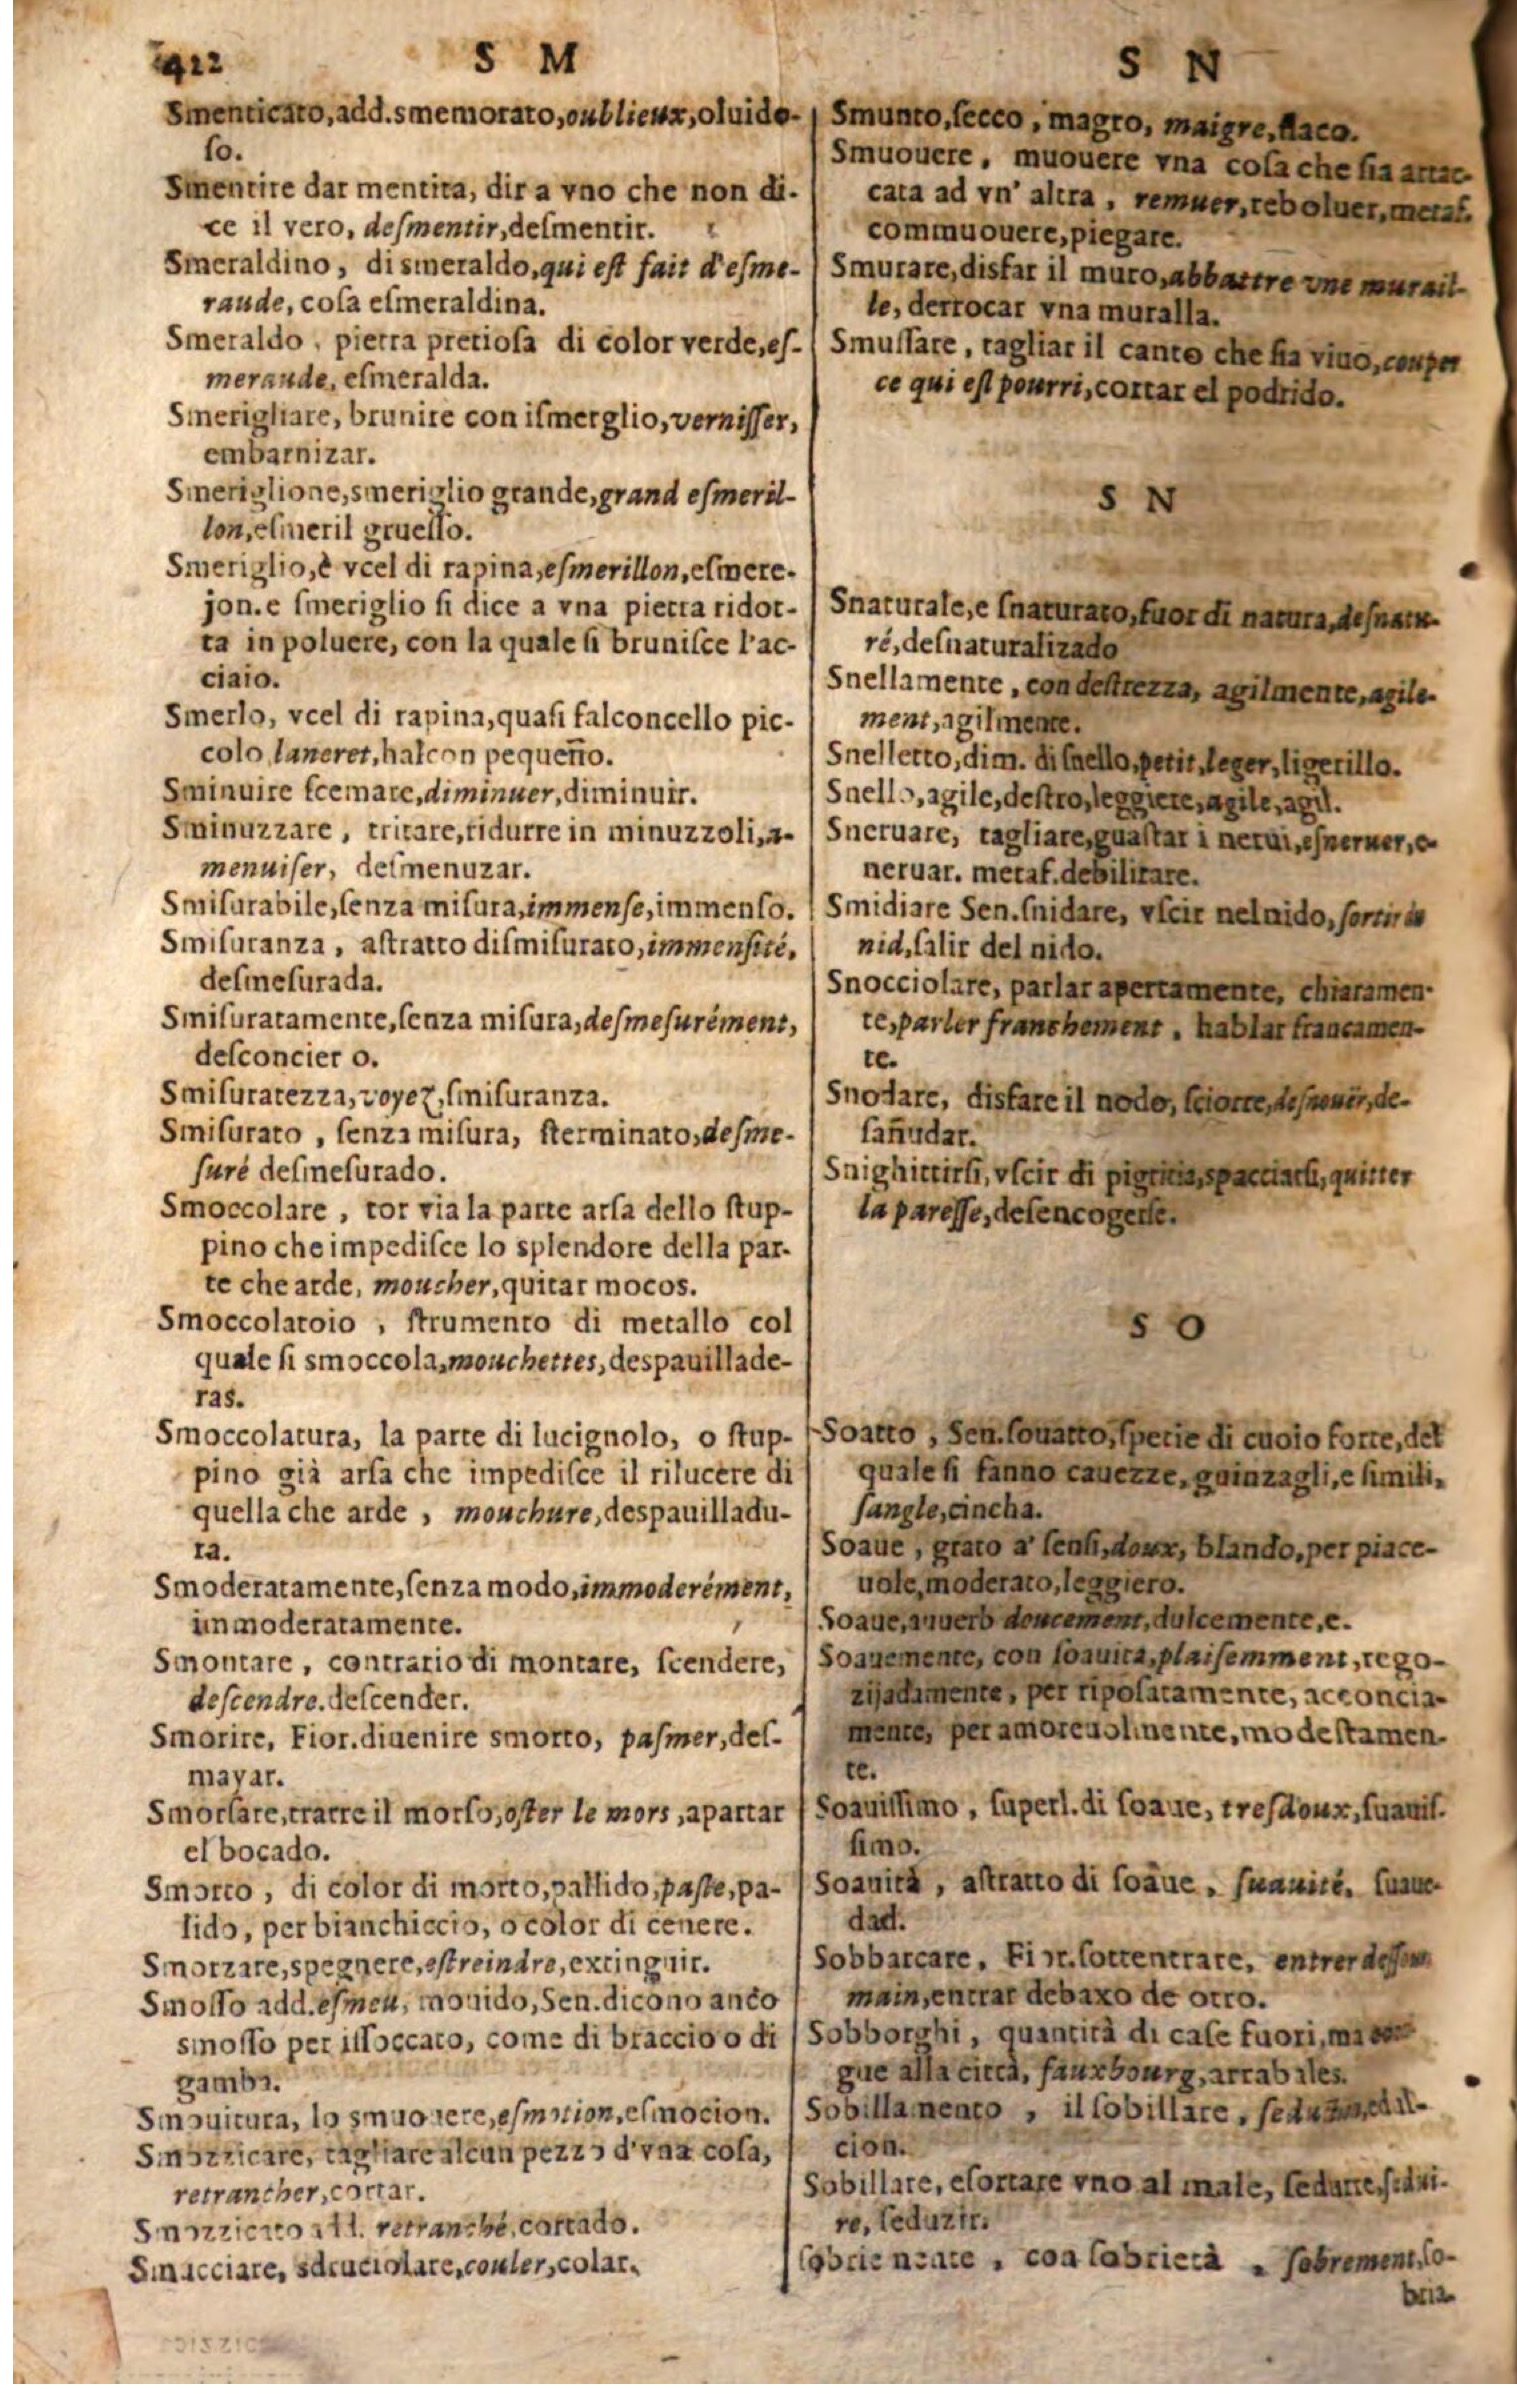 422 S M
Smenticato,add.smemorato,oublieux,oluido-
ſo.
Smentire dar mentita, dir a vno che non di-
ce il vero, deſmentir,deſmentir.
Smeraldino, di smeraldo,qui eſt fait d'eſme-
raude, coſa eſmeraldina.
Smeraldo, pietra pretioſa di color verde,eſ-
meraude, eſmeralda.
Smerigliare, brunire con iſmerglio,verniſſer,
embarnizar.
Smeriglione,smeriglio grande,grand eſmeril-
lon,eſmeril grueſſo.
Smeriglio,è vcel di rapina,eſmerillon,eſmere-
jon.e ſmeriglio ſi dice a vna pietra ridot-
ta in poluere, con la quale ſi bruniſce l'ac-
ciaio.
Smerlo, vcel di rapina,quaſi falconcello pic-
colo,laneret,halcon pequeño.
Sminuire ſcemare,diminuer,diminuir.
Sminuzzare, tritare,ridurre in minuzzoli,a-
menuiſer, deſmenuzar.
Smiſurabile,ſenza miſura,immenſe,immenſo.
Smiſuranza, aſtratto diſmiſurato,immenſité,
deſmeſurada.
Smiſuratamente,ſenza miſura,deſmeſurément,
deſconcier o.
Smiſuratezza,voyez,ſmiſuranza.
Smiſurato, ſenza miſura, ſterminato,deſme-
ſuré deſmeſurado.
Smoccolare, tor via la parte arſa dello ſtup-
pino che impediſce lo splendore della par-
te che arde, moucher,quitar mocos.
Smoccolatoio, ſtrumento di metallo col
quale ſi smoccola,mouchettes,despauillade-
ras.
Smoccolatura, la parte di lucignolo, o ſtup-
pino già arſa che impediſce il rilucere di
quella che arde, mouchure,despauilladu-
ra.
Smoderatamente,ſenza modo,immoderément,
immoderatamente.
Smontare, contrario di montare, ſcendere,
deſcendre.deſcender.
Smorire, Fior.diuenire smorto, paſmer,deſ-
mayar.
Smorſare,trarre il morſo,oſter le mors,apartar
el bocado.
Smorto, di color di morto,pallido,paſle,pa-
lido, per bianchiccio, o color di cenere.
Smorzare,spegnere,eſtreindre,extinguir.
Smoſſo add.eſmeu, mouido,Sen.dicono anco
smoſſo per iſſoccato, come di braccio o di
gamba.
Smouitura, lo smuouere,eſmotion,eſmocion.
Smozzicare, tagliare alcun pezzo d'vna coſa,
retrancher,cortar.
Smozzicato add. retranché,cortado.
Smucciare, sdruciolare,couler,colar.
S N
Smunto,ſecco, magro, maigre,flaco.
Smuouere, muouere vna coſa che ſia attac-
cata ad vn' altra, remuer,reboluer,metaf.
commuouere,piegare.
Smurare,disfar il muro,abbattre vne murail-
le, derrocar vna muralla.
Smuſſare, tagliar il canto che ſia viuo,couper
ce qui eſt pourri,cortar el podrido.
S N
Snaturale,e ſnaturato,fuor di natura,deſnatu-
ré,deſnaturalizado
Snellamente, con deſtrezza, agilmente,agile-
ment,agilmente.
Snelletto,dim. di ſnello,petit,leger,ligerillo.
Snello,agile,deſtro,leggiere,agile,agil.
Sneruare, tagliare,guaſtar i nerui,eſneruer,e-
neruar. metaf.debilitare.
Smidiare Sen.ſnidare, vſcir nel nido,ſortir
nid,ſalir del nido.
Snocciolare, parlar apertamente, chiaramen-
te,parler franchement, hablar francamen-
te.
Snodare, disfare il nodo, ſciorre,deſnouër,de-
ſañudar.
Snighittirſi, vſcir di pigritia,spacciarſi,quitter
la pareſſe,deſencogerſe.
S O
Soatto, Sen.ſouatto,ſpetie di cuoio forte,del
quale ſi fanno cauezze, guinzagli,e ſimili,
ſangle,cincha.
Soaue, grato a' ſenſi,doux, blando,per piace-
uole,moderato,leggiero.
Soaue,auuerb doucement,dulcemente,e.
Soauemente, con ſoauità,plaiſemment,rego-
zijadamente, per ripoſatamente, acconcia-
mente, per amoreuolmente,modeſtamen-
te.
Soauiſſimo, ſuperl.di ſoaue, tresdoux,ſuauiſ-
ſimo.
Soauità, aſtratto di ſoaue, ſuauité, ſuaue-
dad.
Sobbarcare, Fior.ſottentrare, entrer deſſous
main,entrar debaxo de otro.
Sobborghi, quantità di caſe fuori,ma
gue alla città, fauxbourg,arrabales.
Sobillamento, il ſobillare,
cion.
Sobillare, eſortare vno al male, ſedurre,ſedui-
re, ſeduzir.
ſobriemente, con ſobrietà, ſobrement,ſo-
bria-